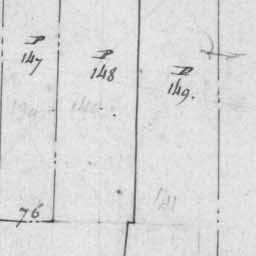 P
147
P
148
P
149.
76